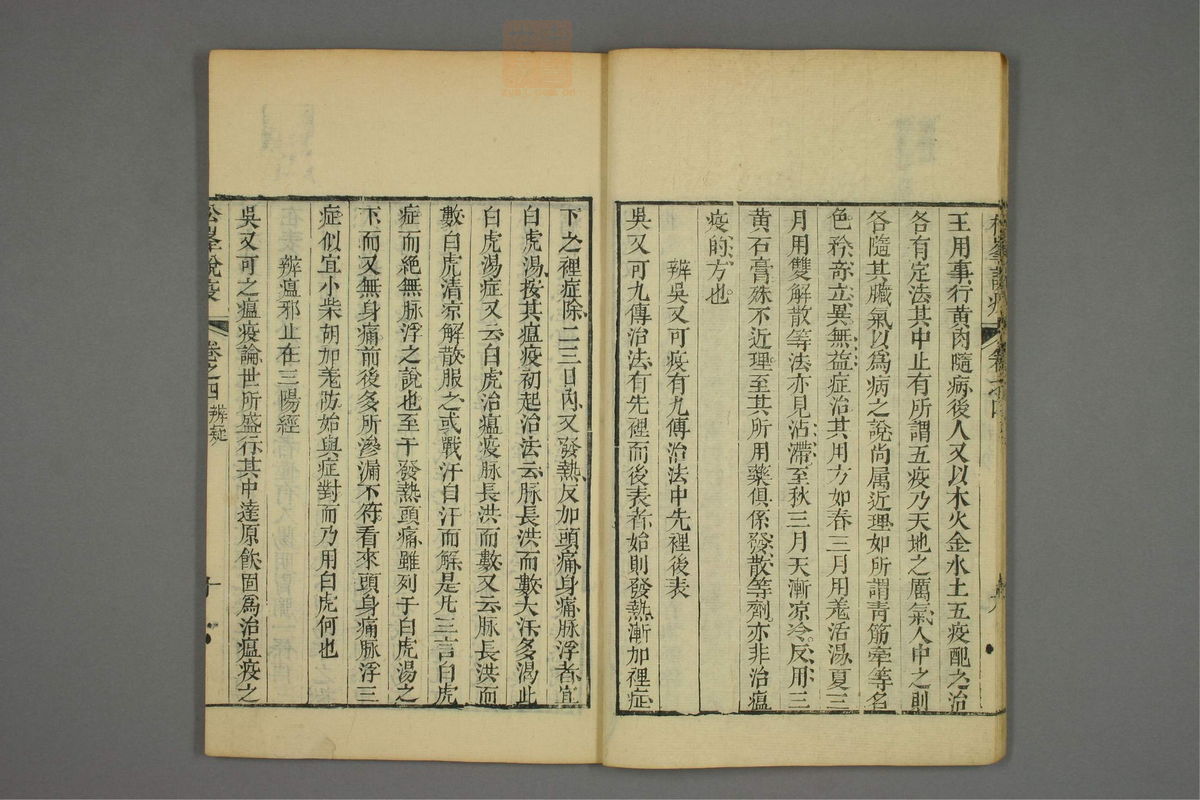 王用事行黃肉隨病後人又以木火金水土五疫配之治
各有定法其中止有所謂五疫乃天地之厲氣人中之則
各隨其臟氣以爲病之說尚属近理如所謂青筋牽等名
色矜竒立異無益症治其用方如春三月用羗活湯夏三
月用雙解散等法亦見沾滯至秋三月天漸凉冷反用三
黃石膏殊不近理至其所用藥俱係發散等劑亦非治瘟
疫的方也
辨吳又可疫有九傳治法中先裡後表
吳又可九傳治法有先裡而後表者始則發熱漸加裡症
下之裡症除二三日內又發熱反加頭痛身痛脉浮者宜
白虎湯按其瘟疫初起治法云脉長洪而數大汗多渴此
白虎湯症又云白虎治瘟疫脉長洪而數又云脉長洪而
數白虎清凉解散服之或戰汗自汗而解是凡三言白虎
症而絶無脉浮之說也至于發熱頭痛雖列于白虎湯之
下而又無身痛前後多所滲漏不符看來頭身痛脉浮三
症似宜小柴胡加羗防始與症對而乃用白虎何也
辨瘟邪止在三陽經
吳又可之瘟疫論世所盛行其中達原飲固爲治瘟疫之
松峯說疫 卷之四 辨疑 十